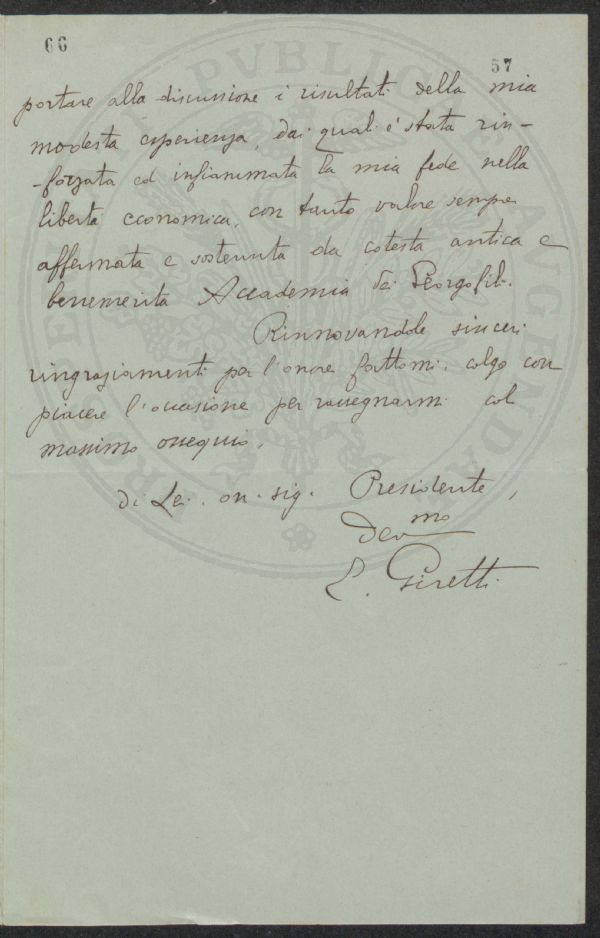 66
57
portare alla discussione i risultati della mia
modesta esperienza, dai quali è stata rin-
-forzata ed infiammata la mia fede nella
libertà economica, con tanto valore sempre
affermata e sostenuta da cotesta antica e
benemerita Accademia dei Georgofili.
Rinnovandole sinceri
ringraziamenti per l'onore fattomi, colgo con
piacere l'occasione per rassegnarmi col
massimo ossequio,
di Lei, on. sig. Presidente,
dev mo
E. Giretti
PVBLICAE AVGENDAE